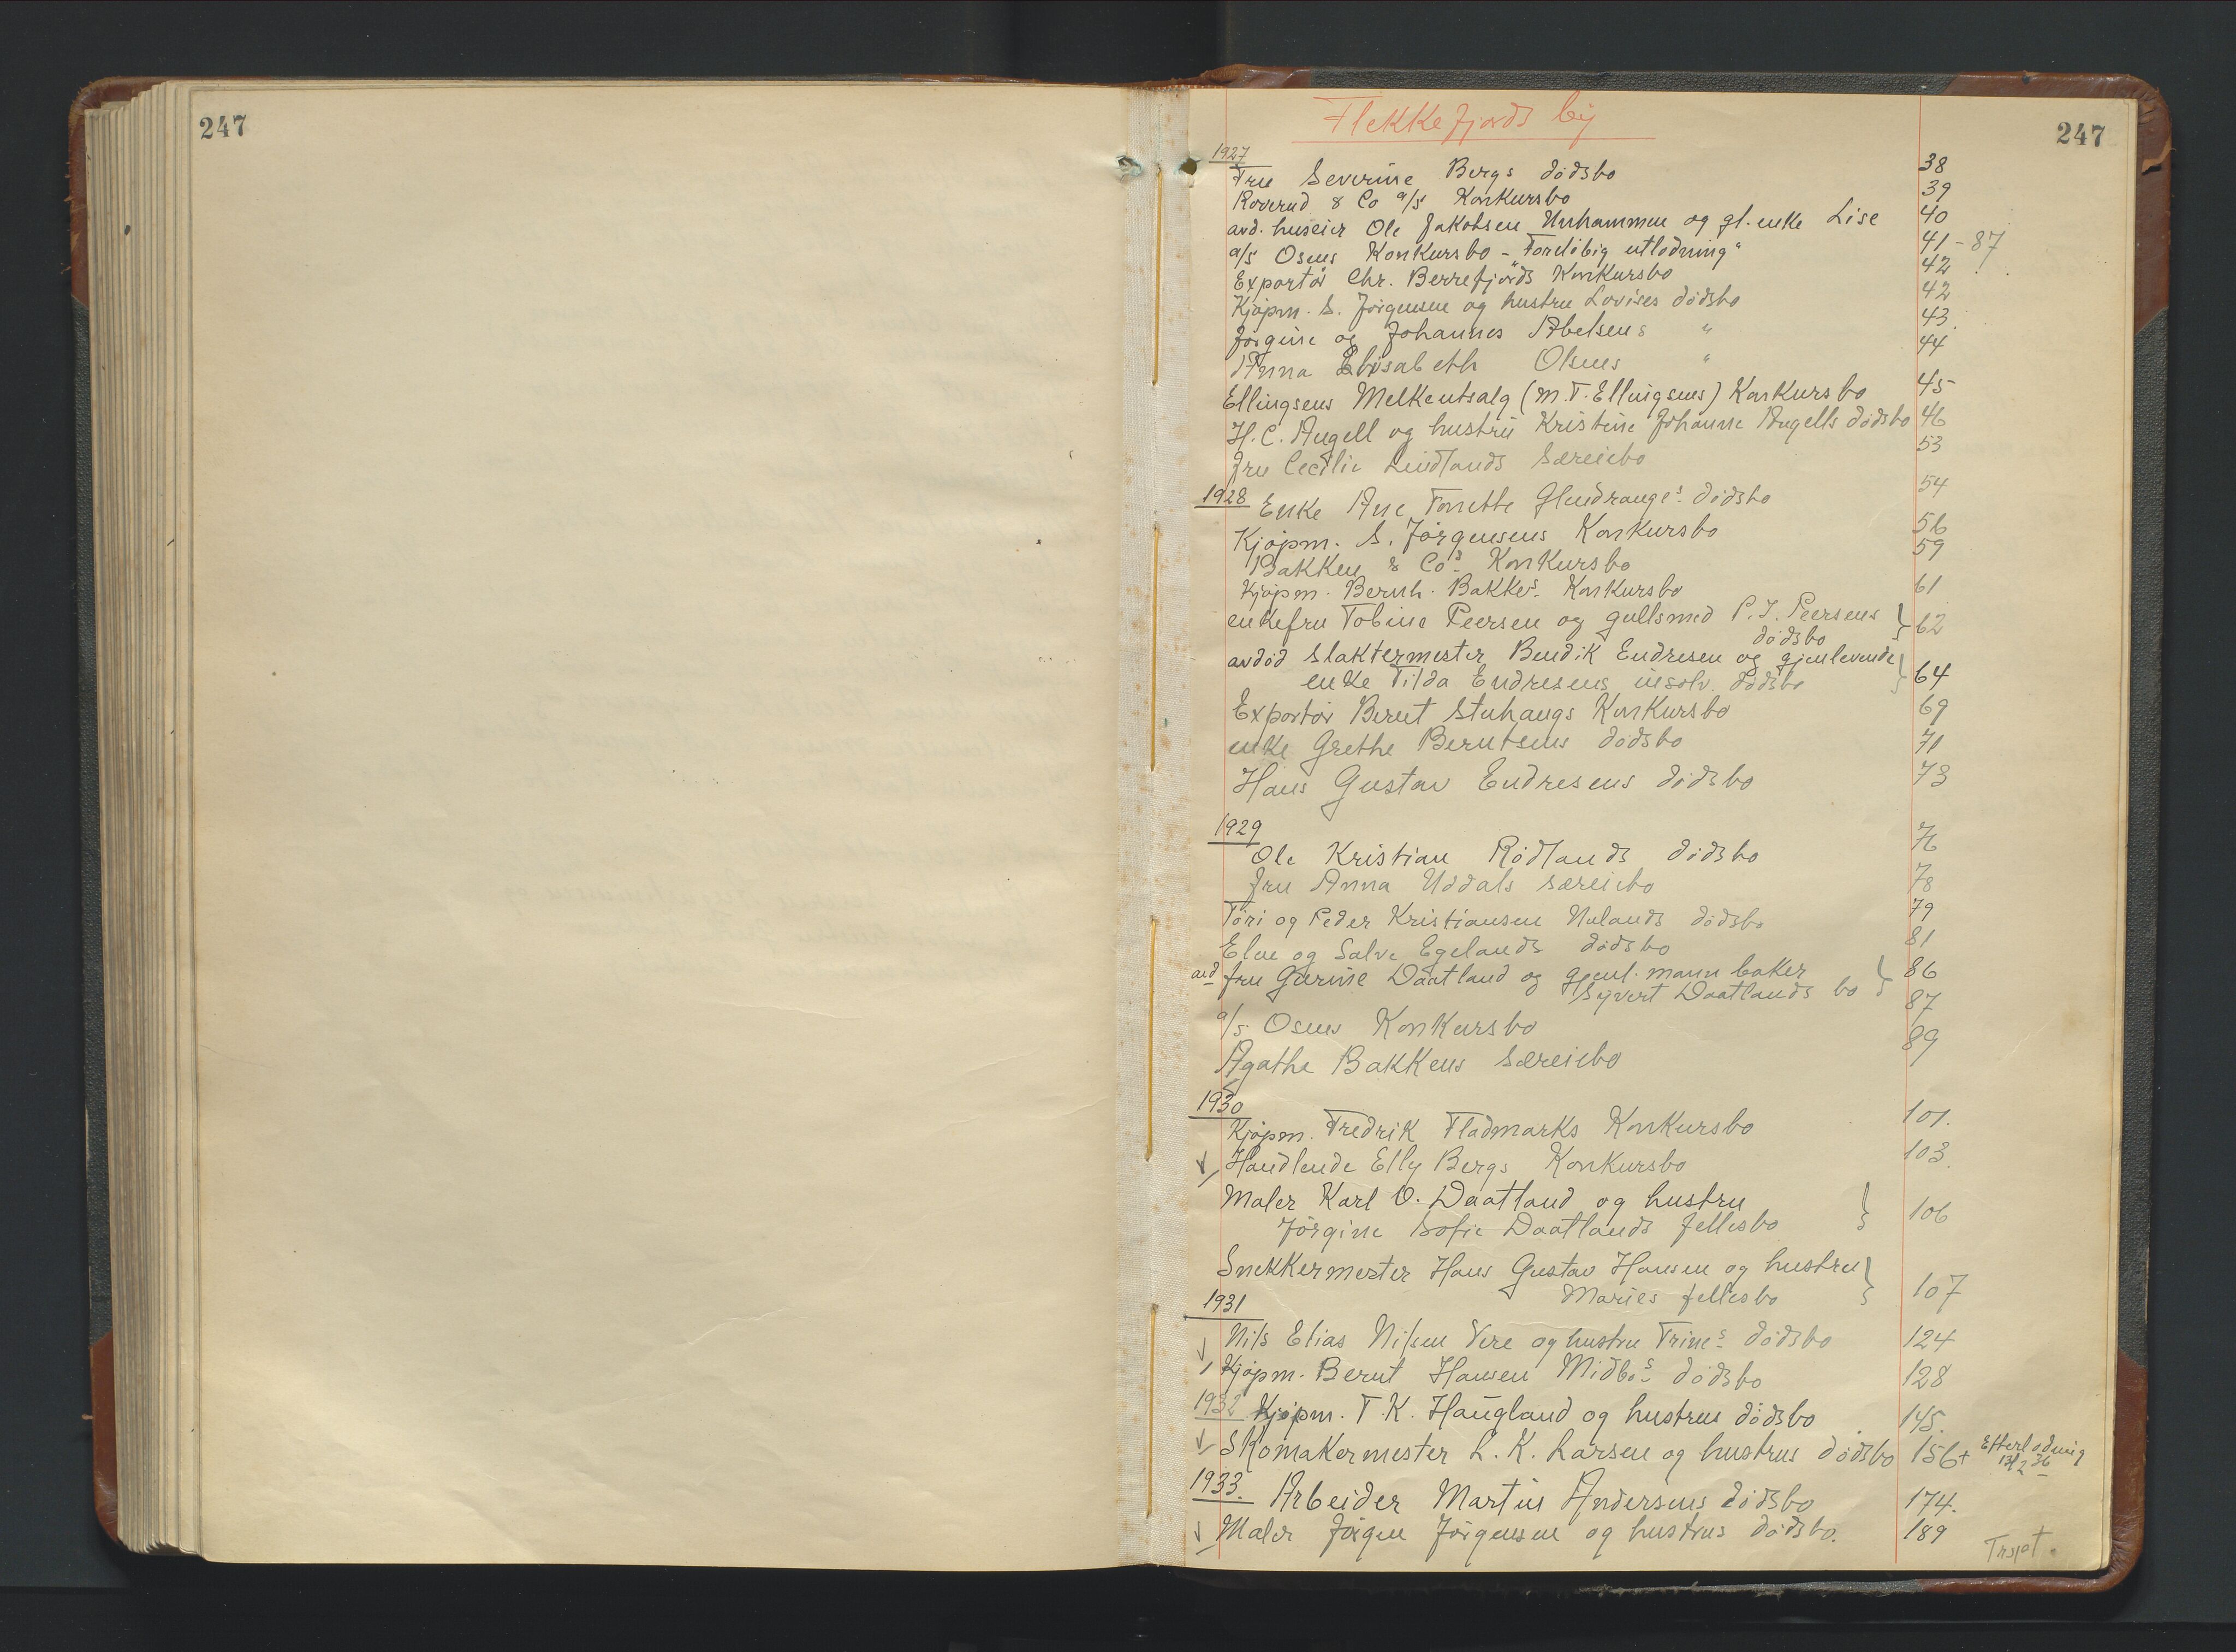 247
247
Flekkefjords by
1927
Fru Severine Bergs dødsbo 38
Roverud & Co a/s Konkursbo 39
avd. huseier Ole Jakobsen Unhammen og gl. enke Lise 40
a/s Osens Konkursbo - "Foreløbig utlodning" 41-87
Exportør Chr. Berrefjords Konkursbo 42
Kjøpm. S. Jørgensen og hustru Lovises dødsbo 42
Jørgine og Johannes Abelsens " 43.
Anna Elisabeth Olsens " 44
Ellingsens Melkeutsalg (M.T. Ellingsens) Konkursbo 45
H.C. Angell og hustru Kristine Johanne Angells dødsbo 46
Fru Cecilie Lindlands Særeiebo 53
1928 Enke Ane Tonette Glendranges dødsbo 54
Kjøpm. S. Jørgensens Konkursbo 56
Bakken & Co's Konkursbo 59
Kjøpm. Bernh. Bakkes Konkursbo 61
enkefru Tobine Peersen og gullsmed P.I. Peersens } 62
dødsbo
avdød Slaktermester Bendik Endresen og gjenlevende }
enke Tilda Endresens insolv. dødsbo 64
Exportør Bernt Stuhaugs Konkursbo 69
enke Grethe Berntsens dødsbo 71
Hans Gustav Endresens dødsbo 73
1929
Ole Kristian Rødlands dødsbo 76
Fru Anna Uddals særeiebo 78
Tori og Peder Kristiansen Nulands dødsbo 79
Elne og Salve Egelands dødsbo 81
avd fru Gurine Daatland og gjenl. mann baker } 86
Syvert Daatlands bo
a/s Osens Konkursbo 87
Agathe Bakkens Særeiebo 89
1930
Kjøpm. Fredrik Fladmarks Konkursbo 101.
Handlende Elly Bergs Konkursbo 103.
Maler Karl O. Daatland og hustru } 106
Jørgine Sofie Daatlands fellesbo
Snekkermester Hans Gustav Hansen og hustru } 107
Maries fellesbo
1931
Nils Elias Nilsen Vere og hustru Trines dødsbo 124
Kjøpm. Bernt Hansen Midbøs dødsbo 128
1932 Kjøpm. T.K. Haugland og hustrus dødsbo 145.
Skomakermester L.K. Larsen og hustrus dødsbo 156+ Efterlodning
1933. Arbeider Martin Andersens dødsbo 174.
Maler Jørgen Jørgensen og hustrus dødsbo. 189